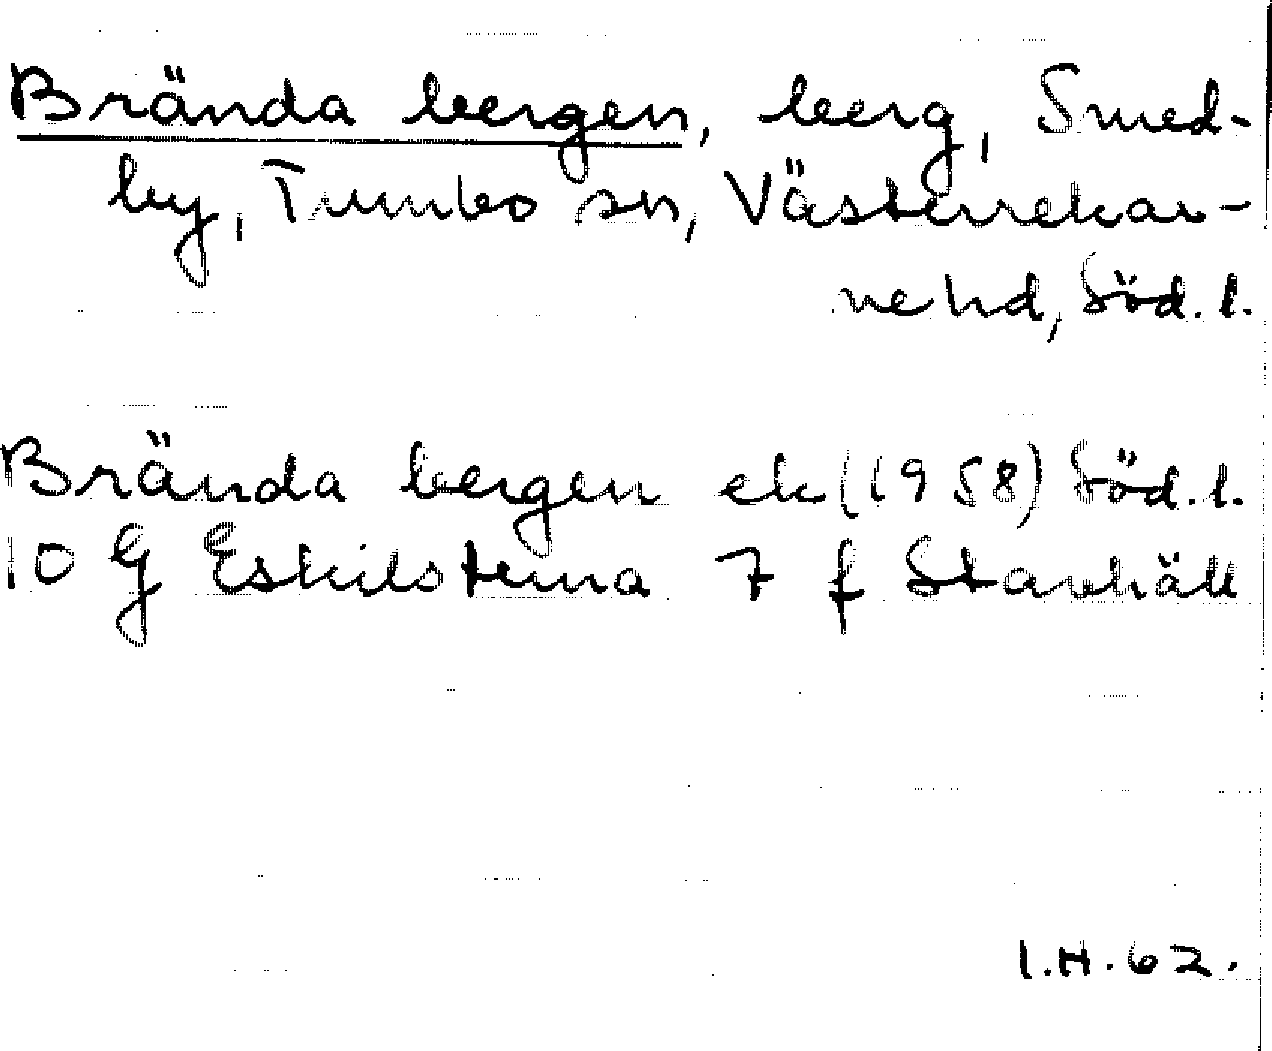 Brända bergen, berg, Smed-
by, Tumbo sn, Västerrekar-
ne hd, Söd. l.
Brända bergen ek (1958) Söd. l.
10 G Eskilstuna 7 f Stavhäll
I.H. 62.